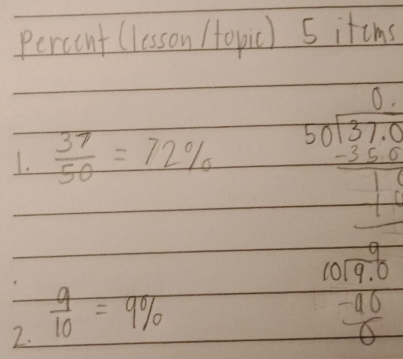 Percent (lesson/topic) 5 items
0.
1. 37/50 = 72% 50)37.0
-35.0
1
9
2. 9/10 = 9% 10)9.0
-90
0